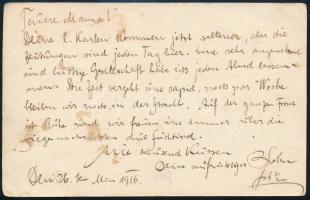 Teuere Mama!
Deine l. Karten kommen jetzt seltener, aber die
Zeitungen sind jeden Tag hier. Eine sehr angenehme
und lustige Gesellschaft habe ich jeden Abend beisam-
men. Die Zeit vergeht uns rapid, noch paar Woche
bleiben wir noch in der Front. Auf der ganzen Front
ist Ruhe und wir freuen uns immer über die
Siegesnachrichten aus Südtirol.
Mit tausend Küssen
Dein aufrichtiger Sohn
Den 26. Mai 1916.